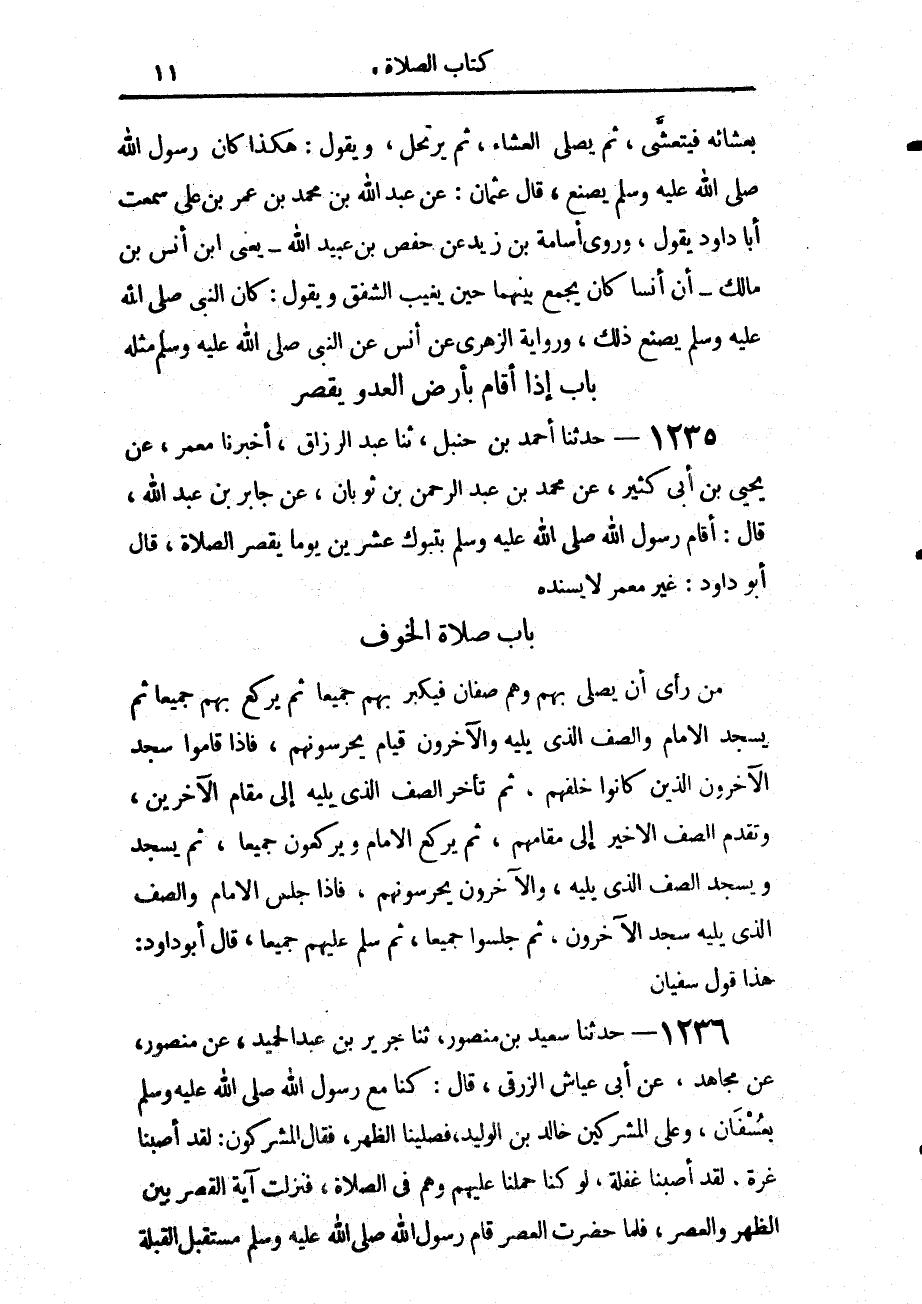 كتاب الصلاة . ١١
بعشائه فيتعشَّى ، ثم يصلى العشاء ، ثم يرتحل ، ويقول : هكذا كان رسول الله
صلى الله عليه وسلم يصنع ، قال عثمان : عن عبد الله بن محمد بن عمر بن على سمعت
أبا داود يقول ، وروى أسامة بن زيد عن حفص بن عبيد الله ــ يعنى ابن أنس بن
مالك ــ أن أنسا كان يجمع بينهما حين يغيب الشفق ويقول : كان النبى صلى الله
عليه وسلم يصنع ذلك ، ورواية الزهرى عن أنس عن النبى صلى الله عليه وسلم مثله
باب إذا أقام بأرض العدو يقصر
١٢٣٥ — حدثنا أحمد بن حنبل ، ثنا عبد الرزاق ، أخبرنا معمر ، عن
يحيى بن أبى كثير ، عن محمد بن عبد الرحمن بن ثوبان ، عن جابر بن عبد الله ،
قال : أقام رسول الله صلى الله عليه وسلم بتبوك عشرين يوما يقصر الصلاة ، قال
أبو داود : غير معمر لا يسنده
باب صلاة الخوف
من رأى أن يصلى بهم وهم صفان فيكبر بهم جميعا ثم يركع بهم جميعا ثم
يسجد الامام والصف الذى يليه والآخرون قيام يحرسونهم ، فاذا قاموا سجد
الآخرون الذين كانوا خلفهم . ثم تأخر الصف الذى يليه إلى مقام الآخرين ،
وتقدم الصف الاخير إلى مقامهم ، ثم يركع الامام ويركعون جميعا ، ثم يسجد
ويسجد الصف الذى يليه ، والآخرون يحرسونهم . فاذا جلس الامام والصف
الذى يليه سجد الآخرون . ثم جلسوا جميعا ، ثم سلم عليهم جميعا ، قال أبو داود :
هذا قول سفيان
١٢٣٦ — حدثنا سعيد بن منصور ، ثنا جرير بن عبد الحميد ، عن منصور ،
عن مجاهد ، عن أبى عياش الزرقى ، قال : كنا مع رسول الله صلى الله عليه وسلم
بعُسْفَان ، وعلى المشركين خالد بن الوليد ، فصلينا الظهر ، فقال المشركون : لقد أصبنا
غرة . لقد أصبنا غفلة ، لو كنا حملنا عليهم وهم فى الصلاة ، فنزلت آية القصر بين
الظهر والعصر ، فلما حضرت العصر قام رسول الله صلى الله عليه وسلم مستقبل القبلة